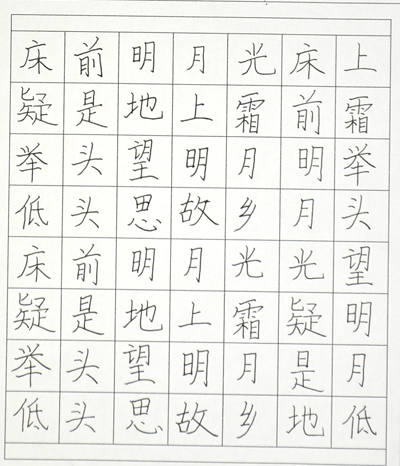 床前明月光床上
疑是地上霜前霜
举头望明月明举
低头思故乡月头
床前明月光光望
疑是地上霜疑明
举头望明月是月
低头思故乡地低